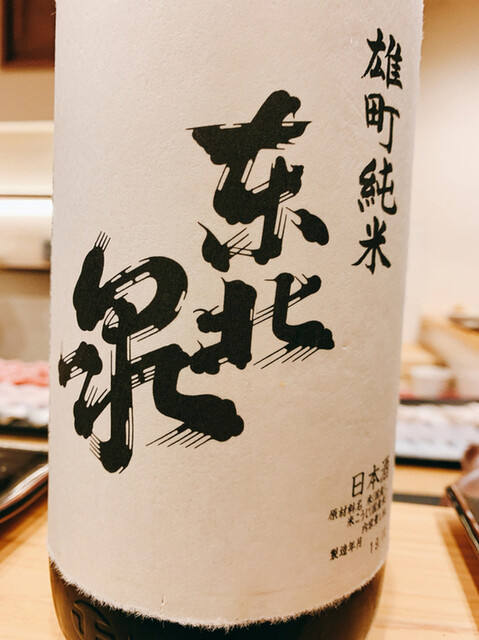 雄町純米
东北
泉
日本酒
原材料名 米(国産)
米こうじ(国産米)
製造年月 18